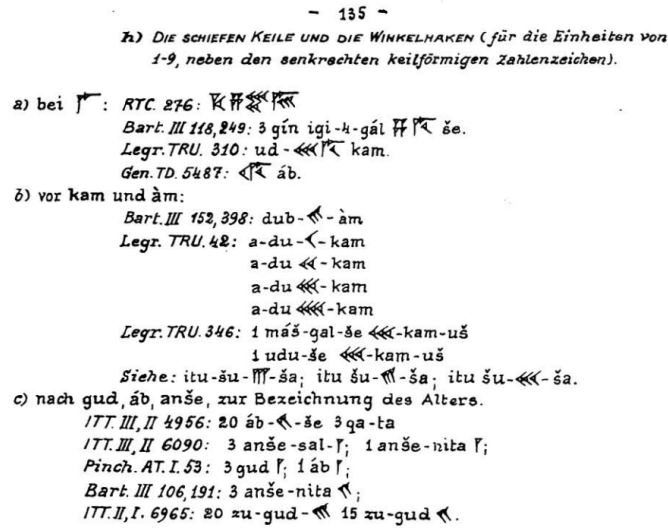 - 135 -
h) DIE SCHIEFEN KEILE UND DIE WINKELHAKEN (für die Einheiten von
1-9, neben den senkrechten keilförmigen Zahlenzeichen).
a) bei : RTC. 276:
Bart. III 118,249: 3 gín igi-4-gál še.
Legr. TRU. 310: ud- kam.
Gen. TD. 5487: áb.
b) vor kam und àm:
Bart. III 152,398: dub- -àm
Legr. TRU. 42: a-du- -kam
a-du -kam
a-du -kam
a-du -kam
Legr. TRU. 346: 1 máš-gal-še -kam-uš
1 udu-še -kam-uš
Siehe: itu-šu- -ša; itu šu- -ša; itu šu- -ša.
c) nach gud, áb, anše, zur Bezeichnung des Alters.
ITT. III, II 4956: 20 áb- -še 3 qa-ta
ITT. III, II 6090: 3 anše-sal- ; 1 anše-nita ;
Pinch. AT. I. 53: 3 gud ; 1 áb ;
Bart. III 106,191: 3 anše-nita ;
ITT. II, I. 6965: 20 zu-gud- 15 zu-gud .